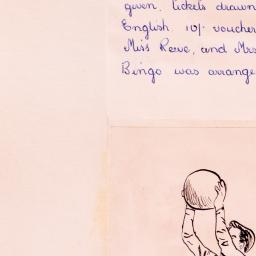 given, tickets drawn
English 10/- voucher
Miss Reeve, and Mrs
Bingo was arrange